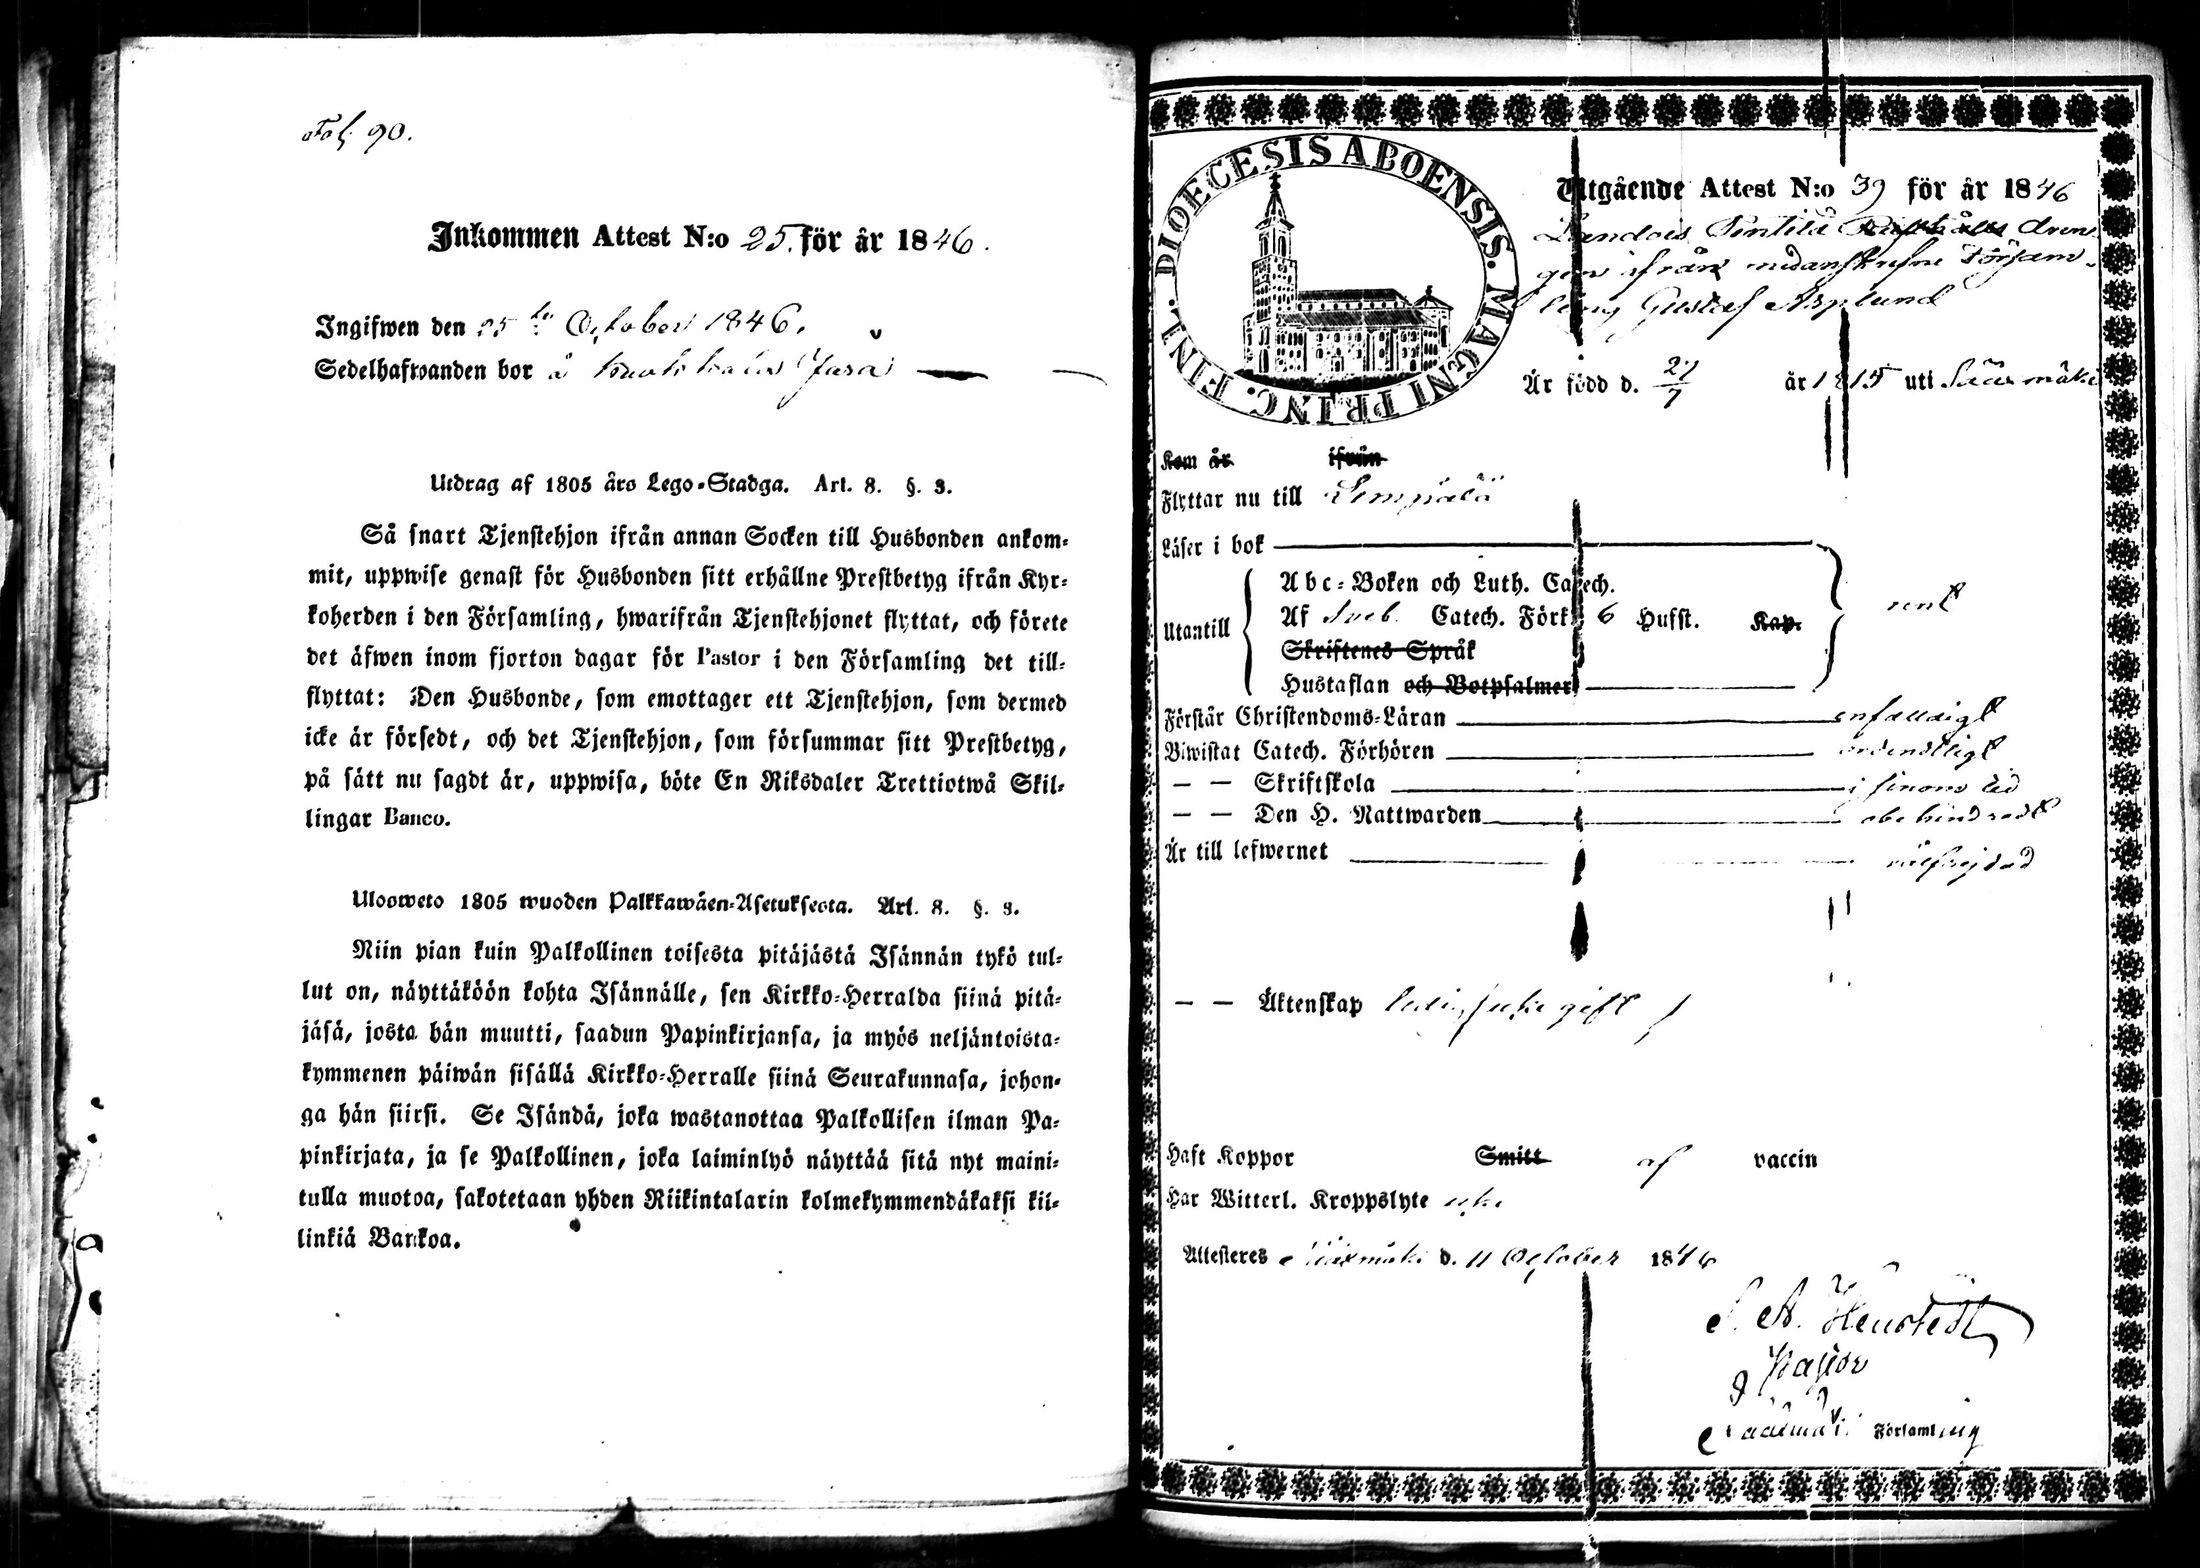 Fol. 90.
Inkommen Attest N:o 25. för år 1846.
Ingifwen den 25 te October 1846.
Sedelhafwanden bor å
Utdrag af 1805 års Lego-Stadga. Art. 8. §. 3.
Så snart Tjenstehjon ifrån annan Socken till Husbonden ankom-
mit, uppwise genast för Husbonden sitt erhållne Prestbetyg ifrån Kyr-
koherden i den Församling, hwarifrån Tjenstehjonet flyttat, och förete
det äfwen inom fjorton dagar för Pastor i den Församling det till-
flyttat: Den Husbonde, som emottager ett Tjenstehjon, som dermed
icke är försedt, och det Tjenstehjon, som försummar sitt Prestbetyg,
på sätt nu sagdt är, uppwisa, böte En Riksdaler Trettiotwå Skil-
lingar Banco.
Ulosweto 1805 wuoden Palkkawäen-Asetuksesta. Art. 8. §. 3.
Niin pian kuin Palkollinen toisesta pitäjästä Isännän tykö tul-
lut on, näyttäköön kohta Isännälle, sen Kirkko-Herralda siinä pitä-
jäsä, josta hän muutti, saadun Papinkirjansa, ja myös neljäntoista-
kymmenen päiwän sisällä Kirkko-Herralle siinä Seurakunnasa, johon-
ga hän siirsi. Se Isändä, joka wastanottaa Palkollisen ilman Pa-
pinkirjata, ja se Palkollinen, joka laiminlyö näyttää sitä nyt maini-
tulla muotoa, sakotetaan yhden Riikintalarin kolmekymmendäkaksi kil-
linkiä Bankoa.
DIOECESIS ABOENSIS. MAGNI PRINC. FINL.
Utgående Attest N:o 39 för år 1846
dren
gen ifrån nedanskrefne Försam-
ling Gustaf Asplund
Är född d. 27/7 år 1815 uti Sääxmäki
Kom år ifrån
Flyttar nu till Lempälä
Läser i bok
Abc-Boken och Luth. Catech.
Utantill Af Sveb. Catech. Förkl. 6 Hufst. Kap. rent
Skriftenes Språk
Hustaflan och Botpsalmer
Förstår Christendoms-Läran enfaldigt
Biwistat Catech. Förhören ordentligt
— — Skriftskola i sinom tid
— — Den H. Nattwarden obehindradt
Är till lefwernet välfrejdad
— — Äktenskap ledig, icke gift
Haft Koppor Smitt af vaccin
Har Witterl. Kroppslyte icke
Attesteres Sääxmäki d. 11 October 1846
Pastor
Sääxmäki Församling